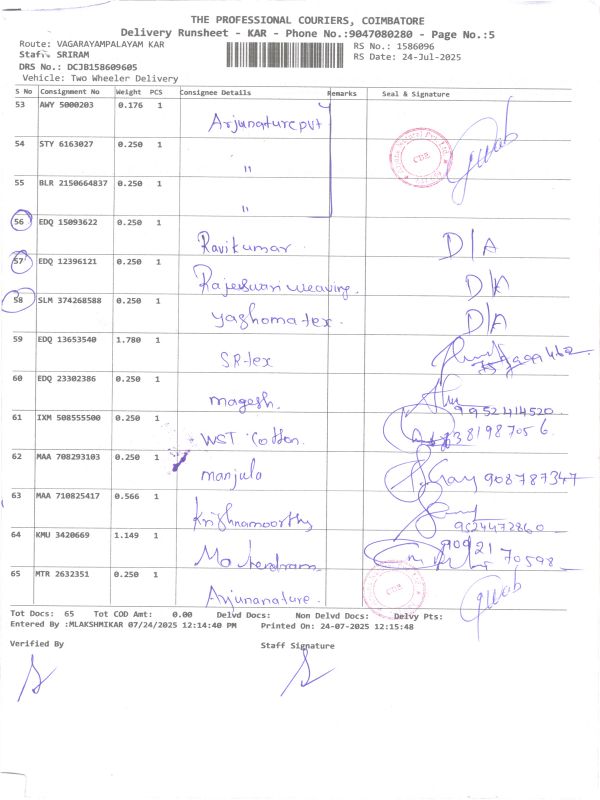 THE PROFESSIONAL COURIERS, COIMBATORE
Delivery Runsheet - KAR - Phone No.:9047080280 - Page No.:5
Route: VAGARAYAMPALAYAM KAR
RS No.: 1586096
Staff: SRIRAM
RS Date: 24-Jul-2025
DRS No.: DCJB158609605
Vehicle: Two Wheeler Delivery
S No Consignment No Weight PCS Consignee Details Remarks Seal & Signature
53 AWY 5000203 0.176 1 Arjunature pvt
54 STY 6163027 0.250 1 "
55 BLR 2150664837 0.250 1 "
56 EDQ 15093622 0.250 1 Ravikumar D/A
57 EDQ 12396121 0.250 1 Rajeswari weaving. D/A
58 SLM 374268588 0.250 1 yashoma tex. D/A
59 EDQ 13653540 1.780 1 S.R-tex
60 EDQ 23302386 0.250 1 magesh. 9952414520
61 IXM 508555500 0.250 1 WST Cotton.
62 MAA 708293103 0.250 1 manjula 908787347
63 MAA 710825417 0.566 1 Krishnamoorthy 9524472860
64 KMU 3420669 1.149 1 90921 70598
65 MTR 2632351 0.250 1 Arjunanature.
Tot Docs: 65 Tot COD Amt: 0.00 Delvd Docs: Non Delvd Docs: Delvy Pts:
Entered By :MLAKSHMIKAR 07/24/2025 12:14:40 PM Printed On: 24-07-2025 12:15:48
Verified By Staff Signature